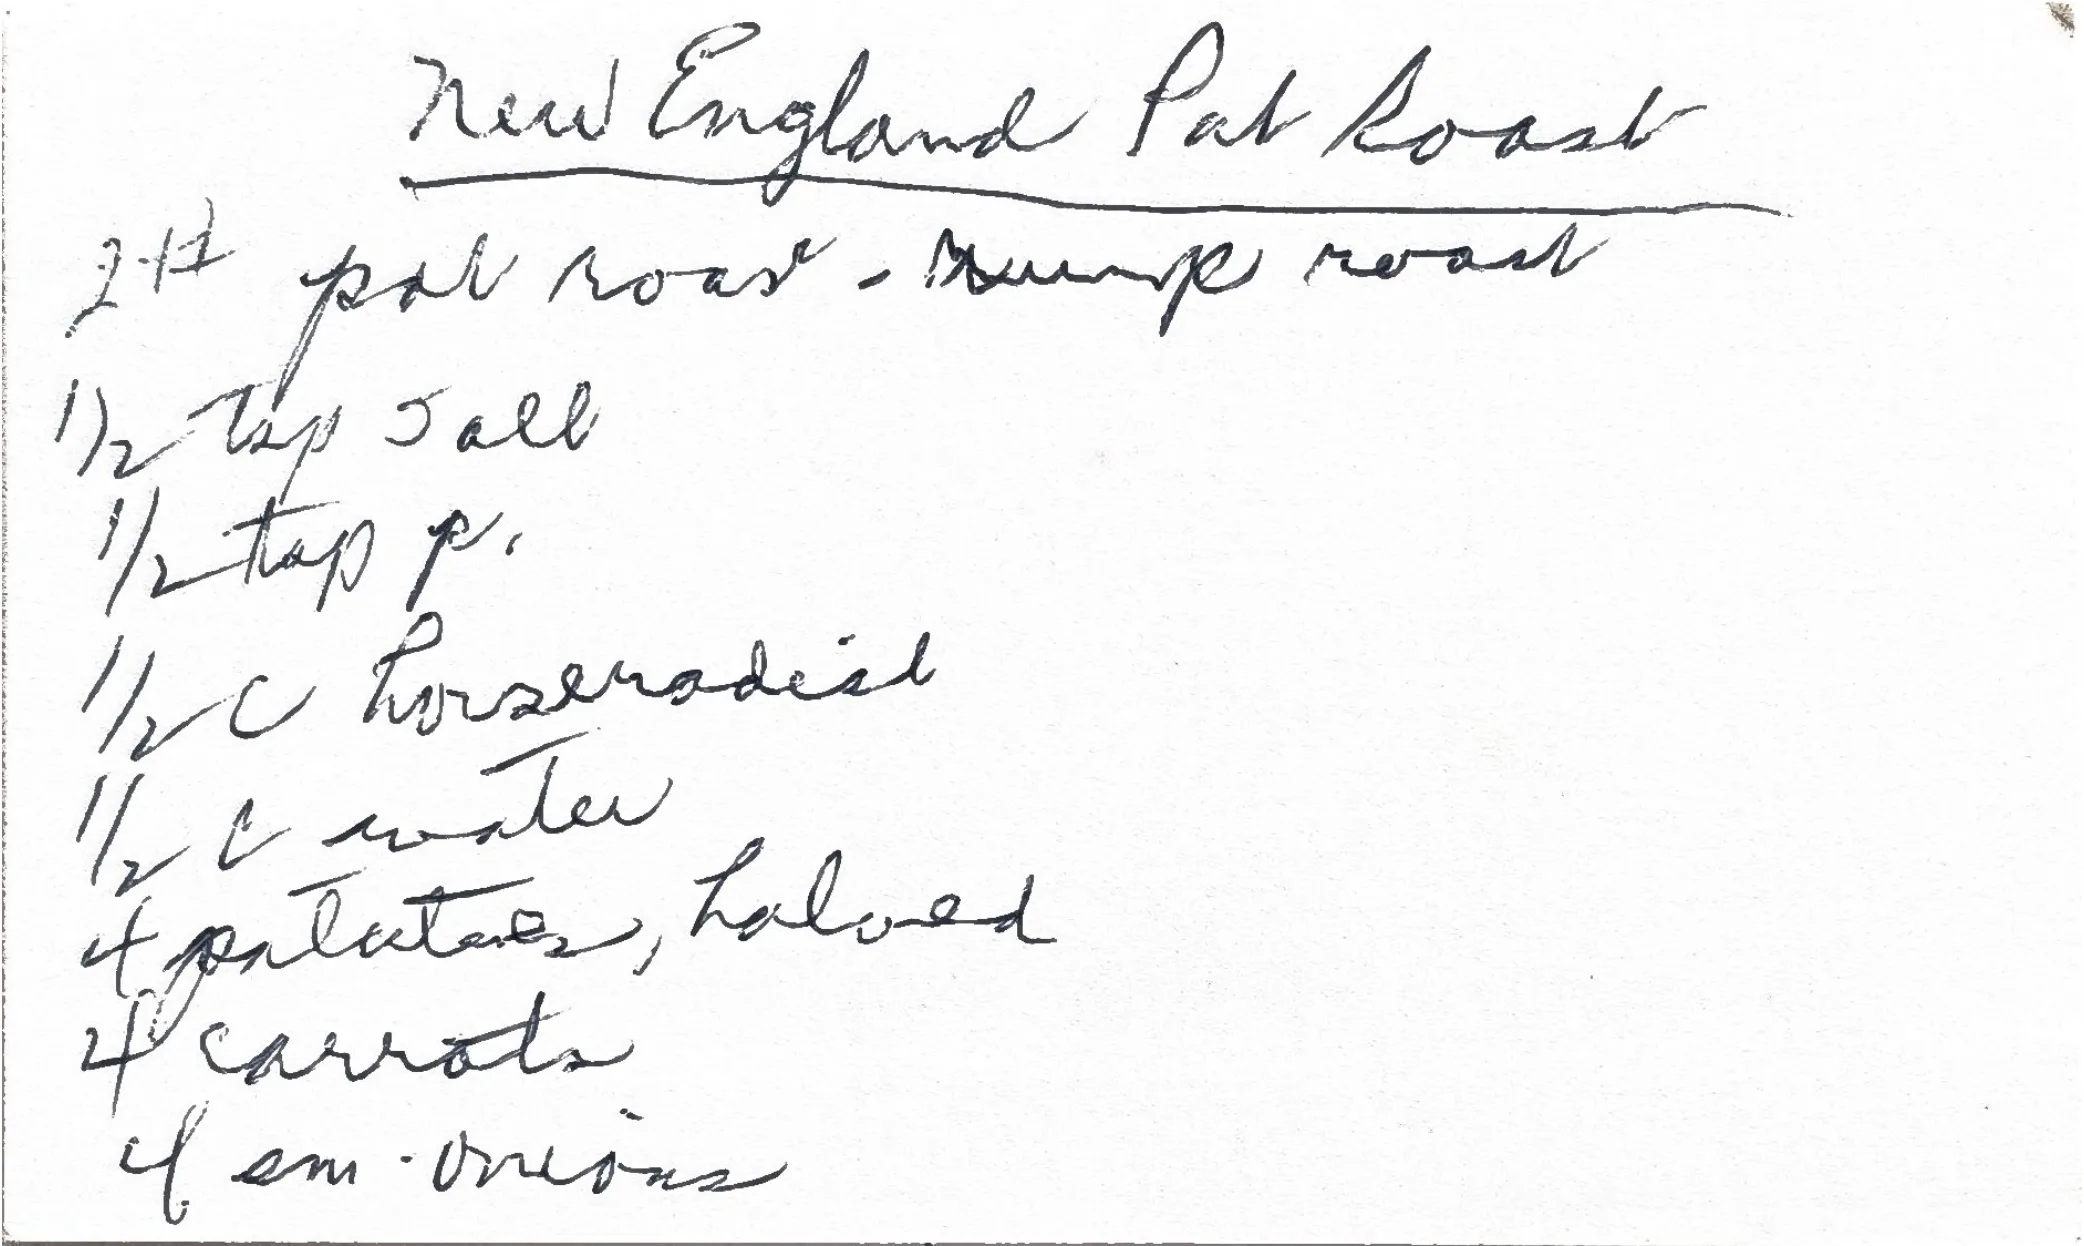 New England Pot Roast
2# pot roast - rump roast
1/2 tsp salt
1/2 tsp p.
1/2 c horseradish
1/2 c water
4 potatoes, halved
4 carrots
4 sm. onions